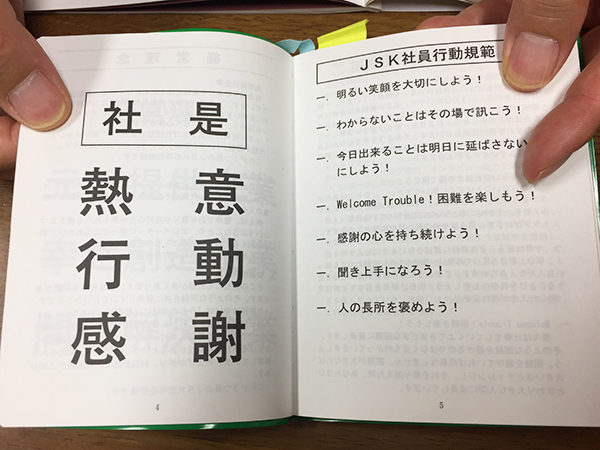 社　是
熱　意
行　動
感　謝
4
ＪＳＫ社員行動規範
一．明るい笑顔を大切にしよう！
一．わからないことはその場で訊こう！
一．今日出来ることは明日に延ばさない
にしよう！
一．Welcome Trouble！困難を楽しもう！
一．感謝の心を持ち続けよう！
一．聞き上手になろう！
一．人の長所を褒めよう！
5